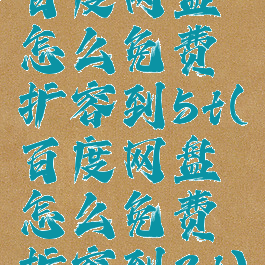 百度网盘
怎么免费
扩容到5t(
百度网盘
怎么免费
扩容到2t)